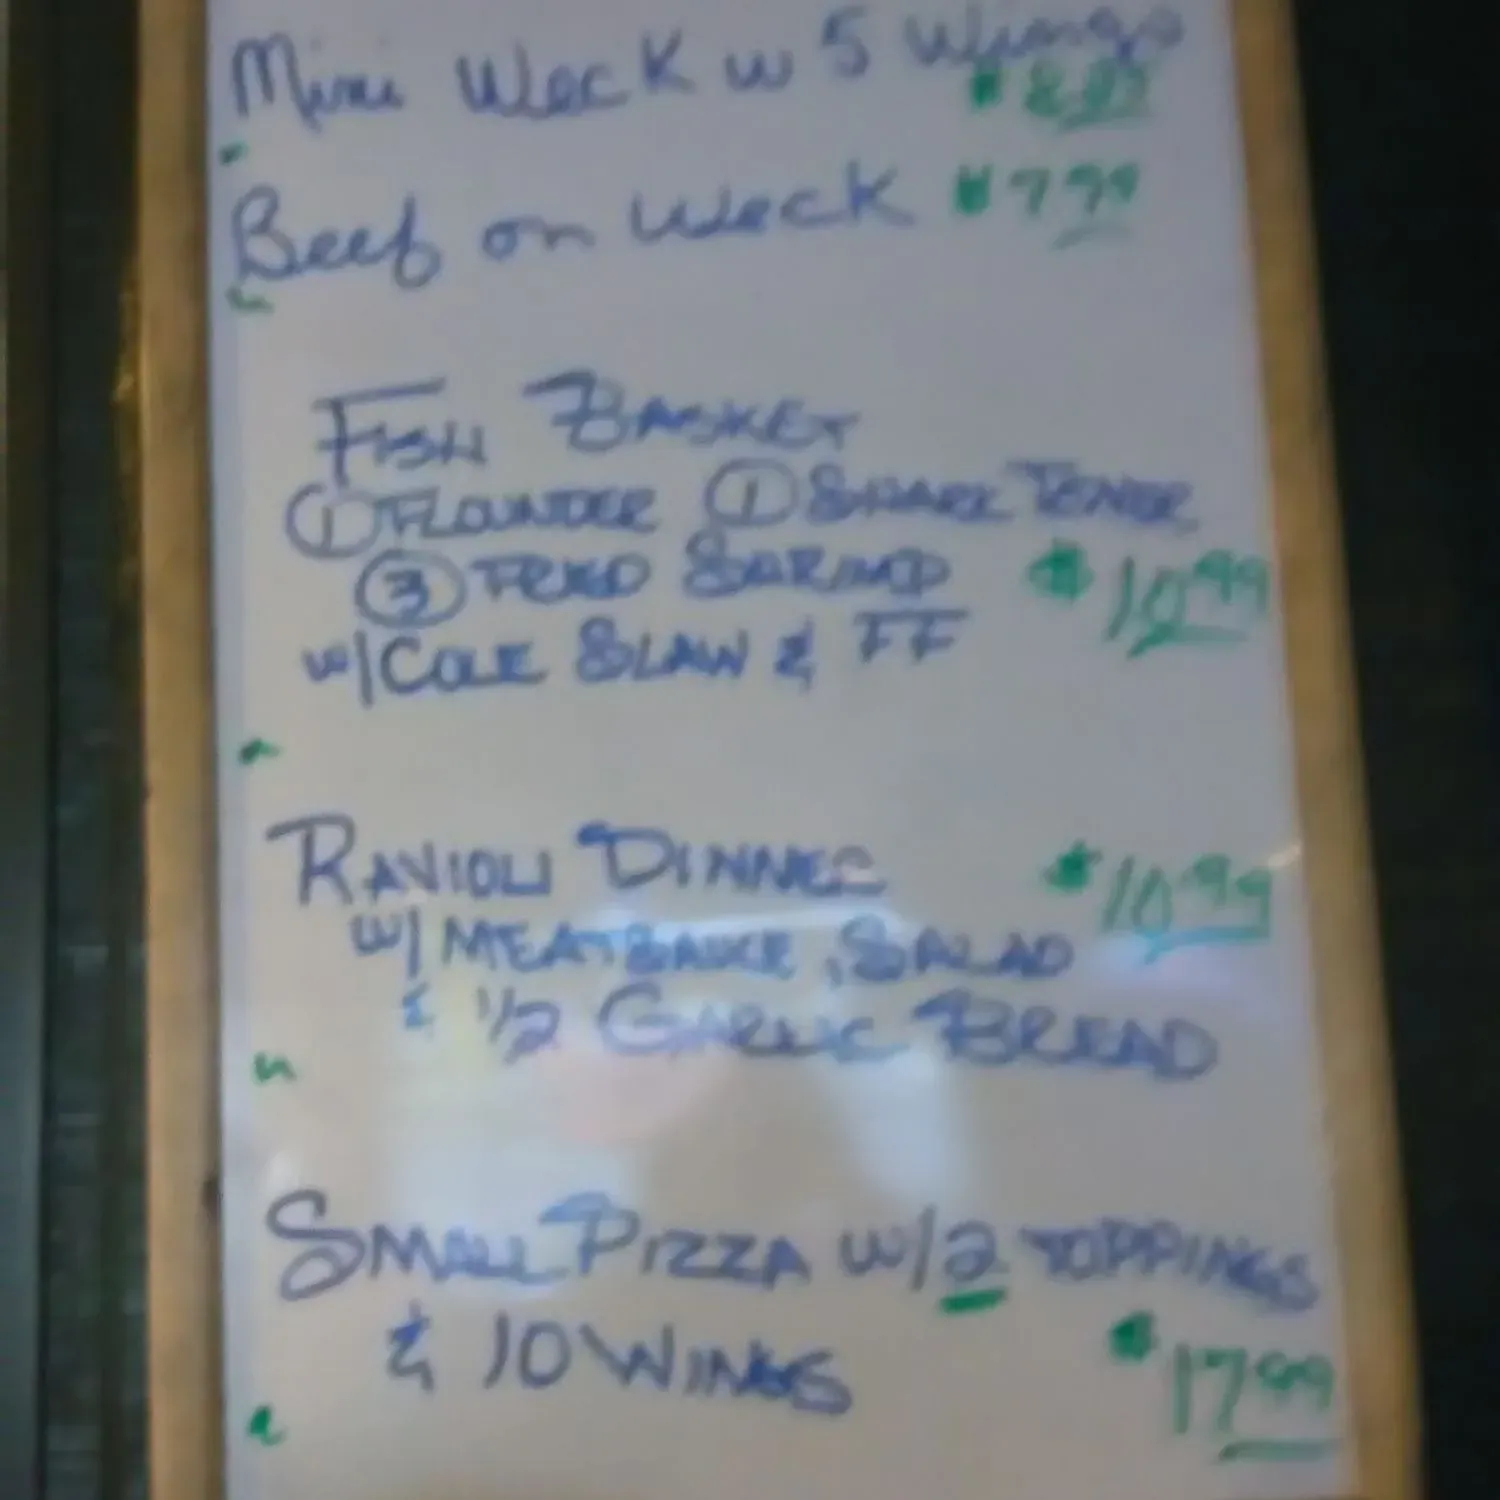 Mini Weck w 5 Wings
Beef on Weck $7.99
FISH BASKET
① FLOUNDER ① SHARK TENER
③ FRIED SHRIMP $10.99
w/ COLE SLAW & FF
RAVIOLI DINNER $10.99
w/ MEATSAUCE, SALAD
& 1/2 GARLIC BREAD
SMALL PIZZA w/ 2 TOPPINGS
& 10 WINGS $17.99